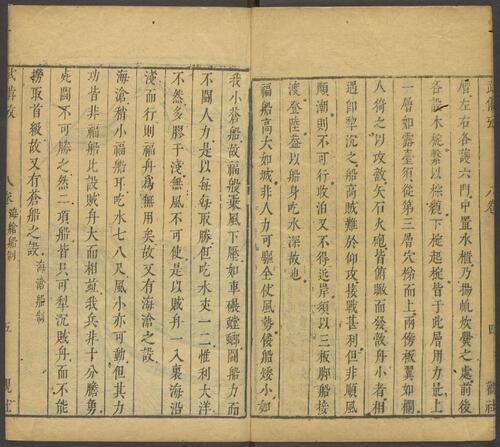 層左右各護六門中置水櫃乃揚帆炊爨之處前後
各設木椗繫以棕纜下椗起椗皆于此層用力最上
一層如露臺須從第三層穴梯而上兩傍板翼如欄
人倚之以攻敵矢石火砲皆俯瞰而發敵舟小者相
遇即犁沉之船高賊難於仰攻接戰甚利但非順風
順潮則不可行收泊又不得近岸須以三板脚船接
渡登陸蓋以船身吃水深故也
福船高大如城非人力可驅全仗風勢倭船矮小如
我小蒼船故福船乘風下壓如車碾螳螂鬪船力而
不鬪人力是以每每取勝但吃水丈一二惟利大洋
不然多膠于淺無風不可使是以賊舟一入裏海沿
淺而行則福舟為無用矣故又有海滄之設
海滄稍小福船耳吃水七八尺風小亦可動但其力
功皆非福船比設賊舟大而相並我兵非十分膽勇
死鬪不可勝之然二項船皆只可犁沉賊舟而不能
撈取首級故又有蒼船之設
海滄船制
五